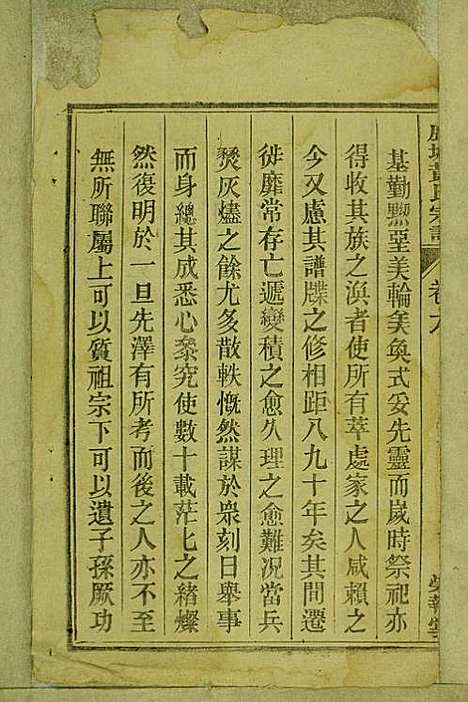 黃氏宗譜 卷六
基勤黝堊美輪美奐式妥先靈而歲時祭祀亦
得收其族之渙者使所有萃處家之人咸賴之
今又慮其譜牒之修相距八九十年矣其間遷
徙靡常存亡遞變積之愈久理之愈難況當兵
燹灰燼之餘尤多散軼慨然謀於衆刻日舉事
而身總其成悉心叅究使數十載茫匕之緒燦
然復明於一旦先澤有所考而後之人亦不至
無所聯屬上可以質祖宗下可以遺子孫厥功